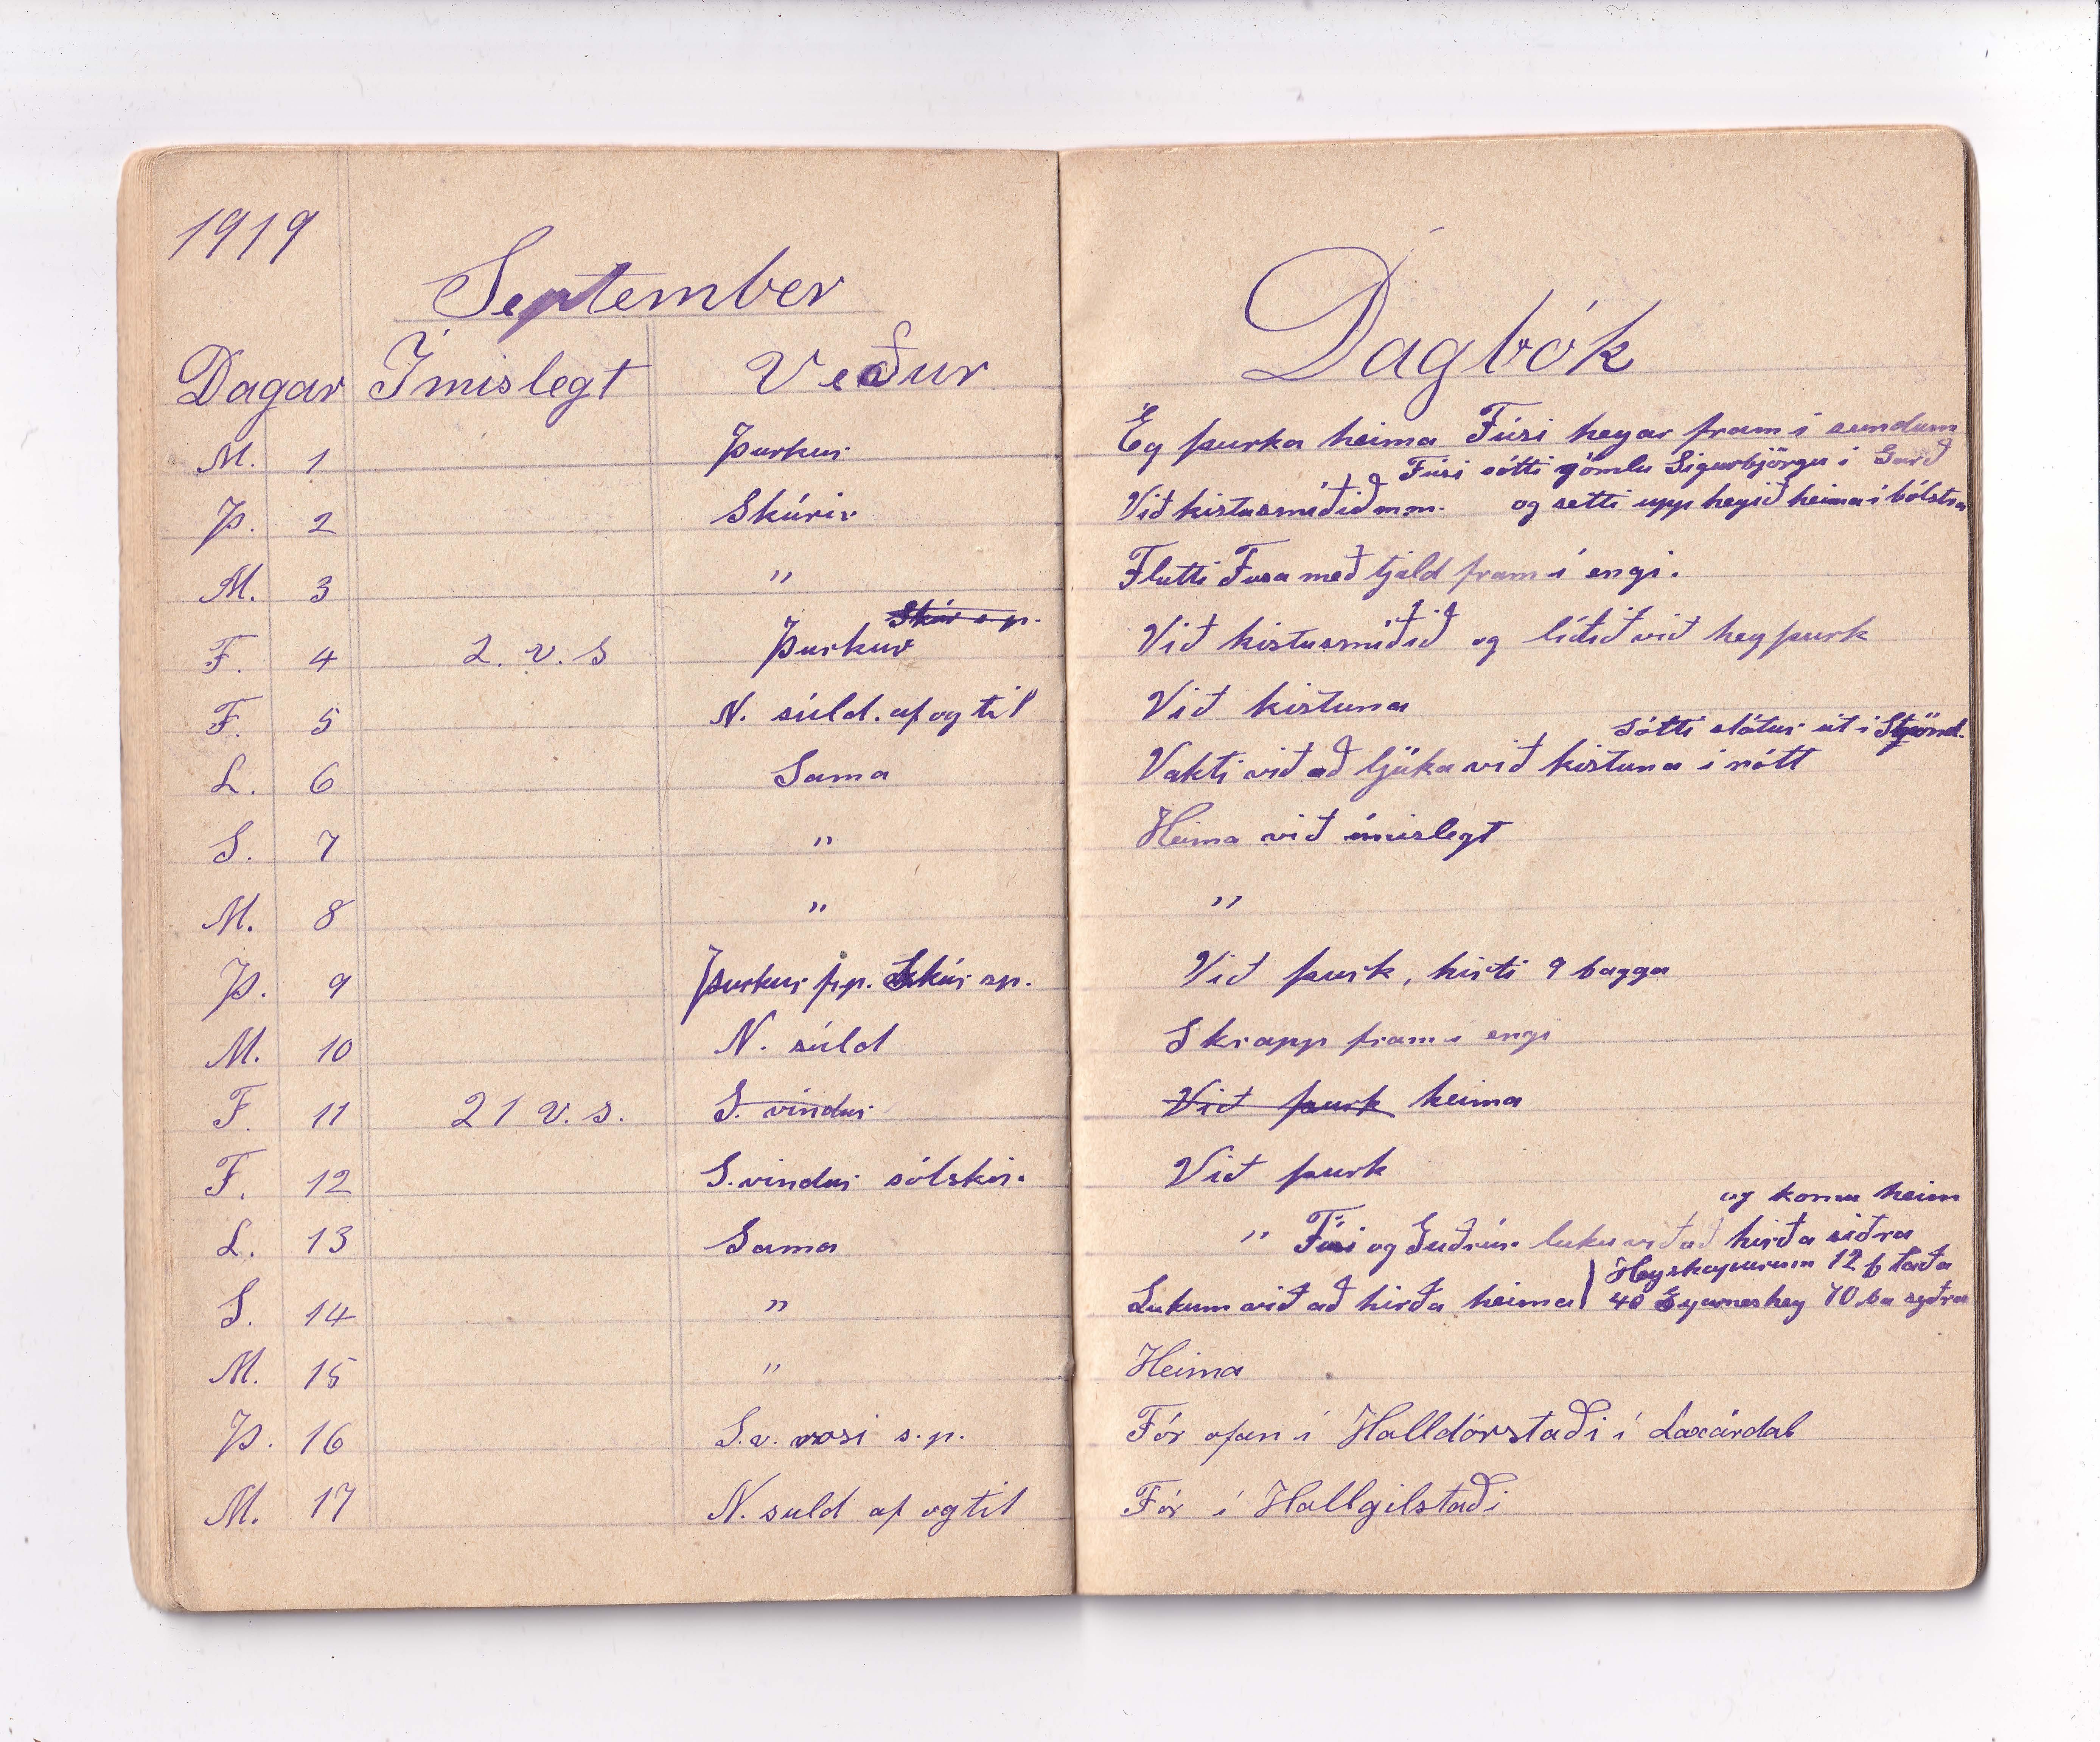 1919
September
Dagar Ímislegt Veður
M. 1 Þurkur
Þ. 2 Skúrir
M. 3 "
Skúr s.p.
F. 4 2. v. s Þurkur
F. 5 N. súld. af og til
L. 6 Sama
S. 7 "
M. 8 "
Þ. 9 Þurkur f.p. Skúr sp.
M. 10 N. súld
F. 11 21 v. s. S. vindur
F. 12 S. vindur sólskin.
L. 13 Sama
S. 14 "
M. 15 "
Þ. 16 S.v. rosi s.p.
M. 17 N. suld af og til
Dagbók
Ég þurka heima Fúsi heyar fram í sundum
Fúsi sótti gömlu Sigurbjörgu í Garð
Við kistusmíðið m.m. og setti upp heyið heima í bólstra
Flutti Fusa með tjald fram í engi.
Við kistusmiðið og lítið við heyþurk
Við kistuna
Sótti slátur út í
Vakti við að ljúka við kistuna í nótt
Heima við ímislegt
"
Við þurk, hirti 9 bagga
Skrapp fram í engi
Við þurk heima
Við þurk
og komu heim
" Fúsi og Guðrún luku við að hirða siðra
Heyskapurinn 12 f taða
Lukum við að hirða heima 40 70 ba syðra
Heima
Fór ofan í Halldórstaði í Laxárdal
Fór í Hallgilstaði